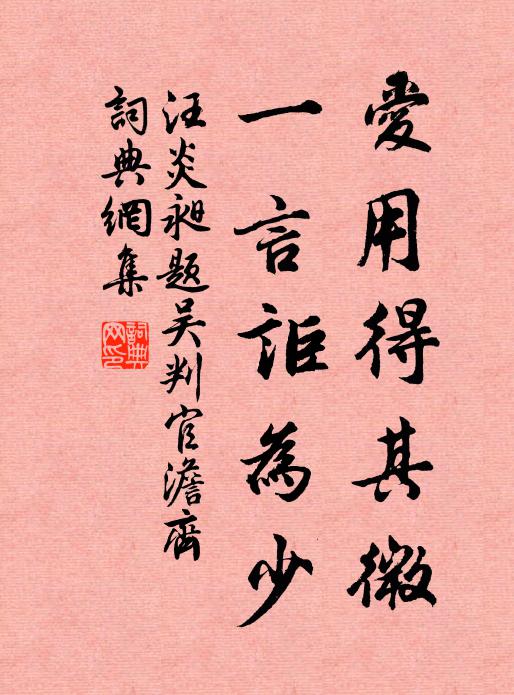 愛用得其微
一言詎為少
汪炎昶題吴判官澹齊
詞典網集
詞典
网印